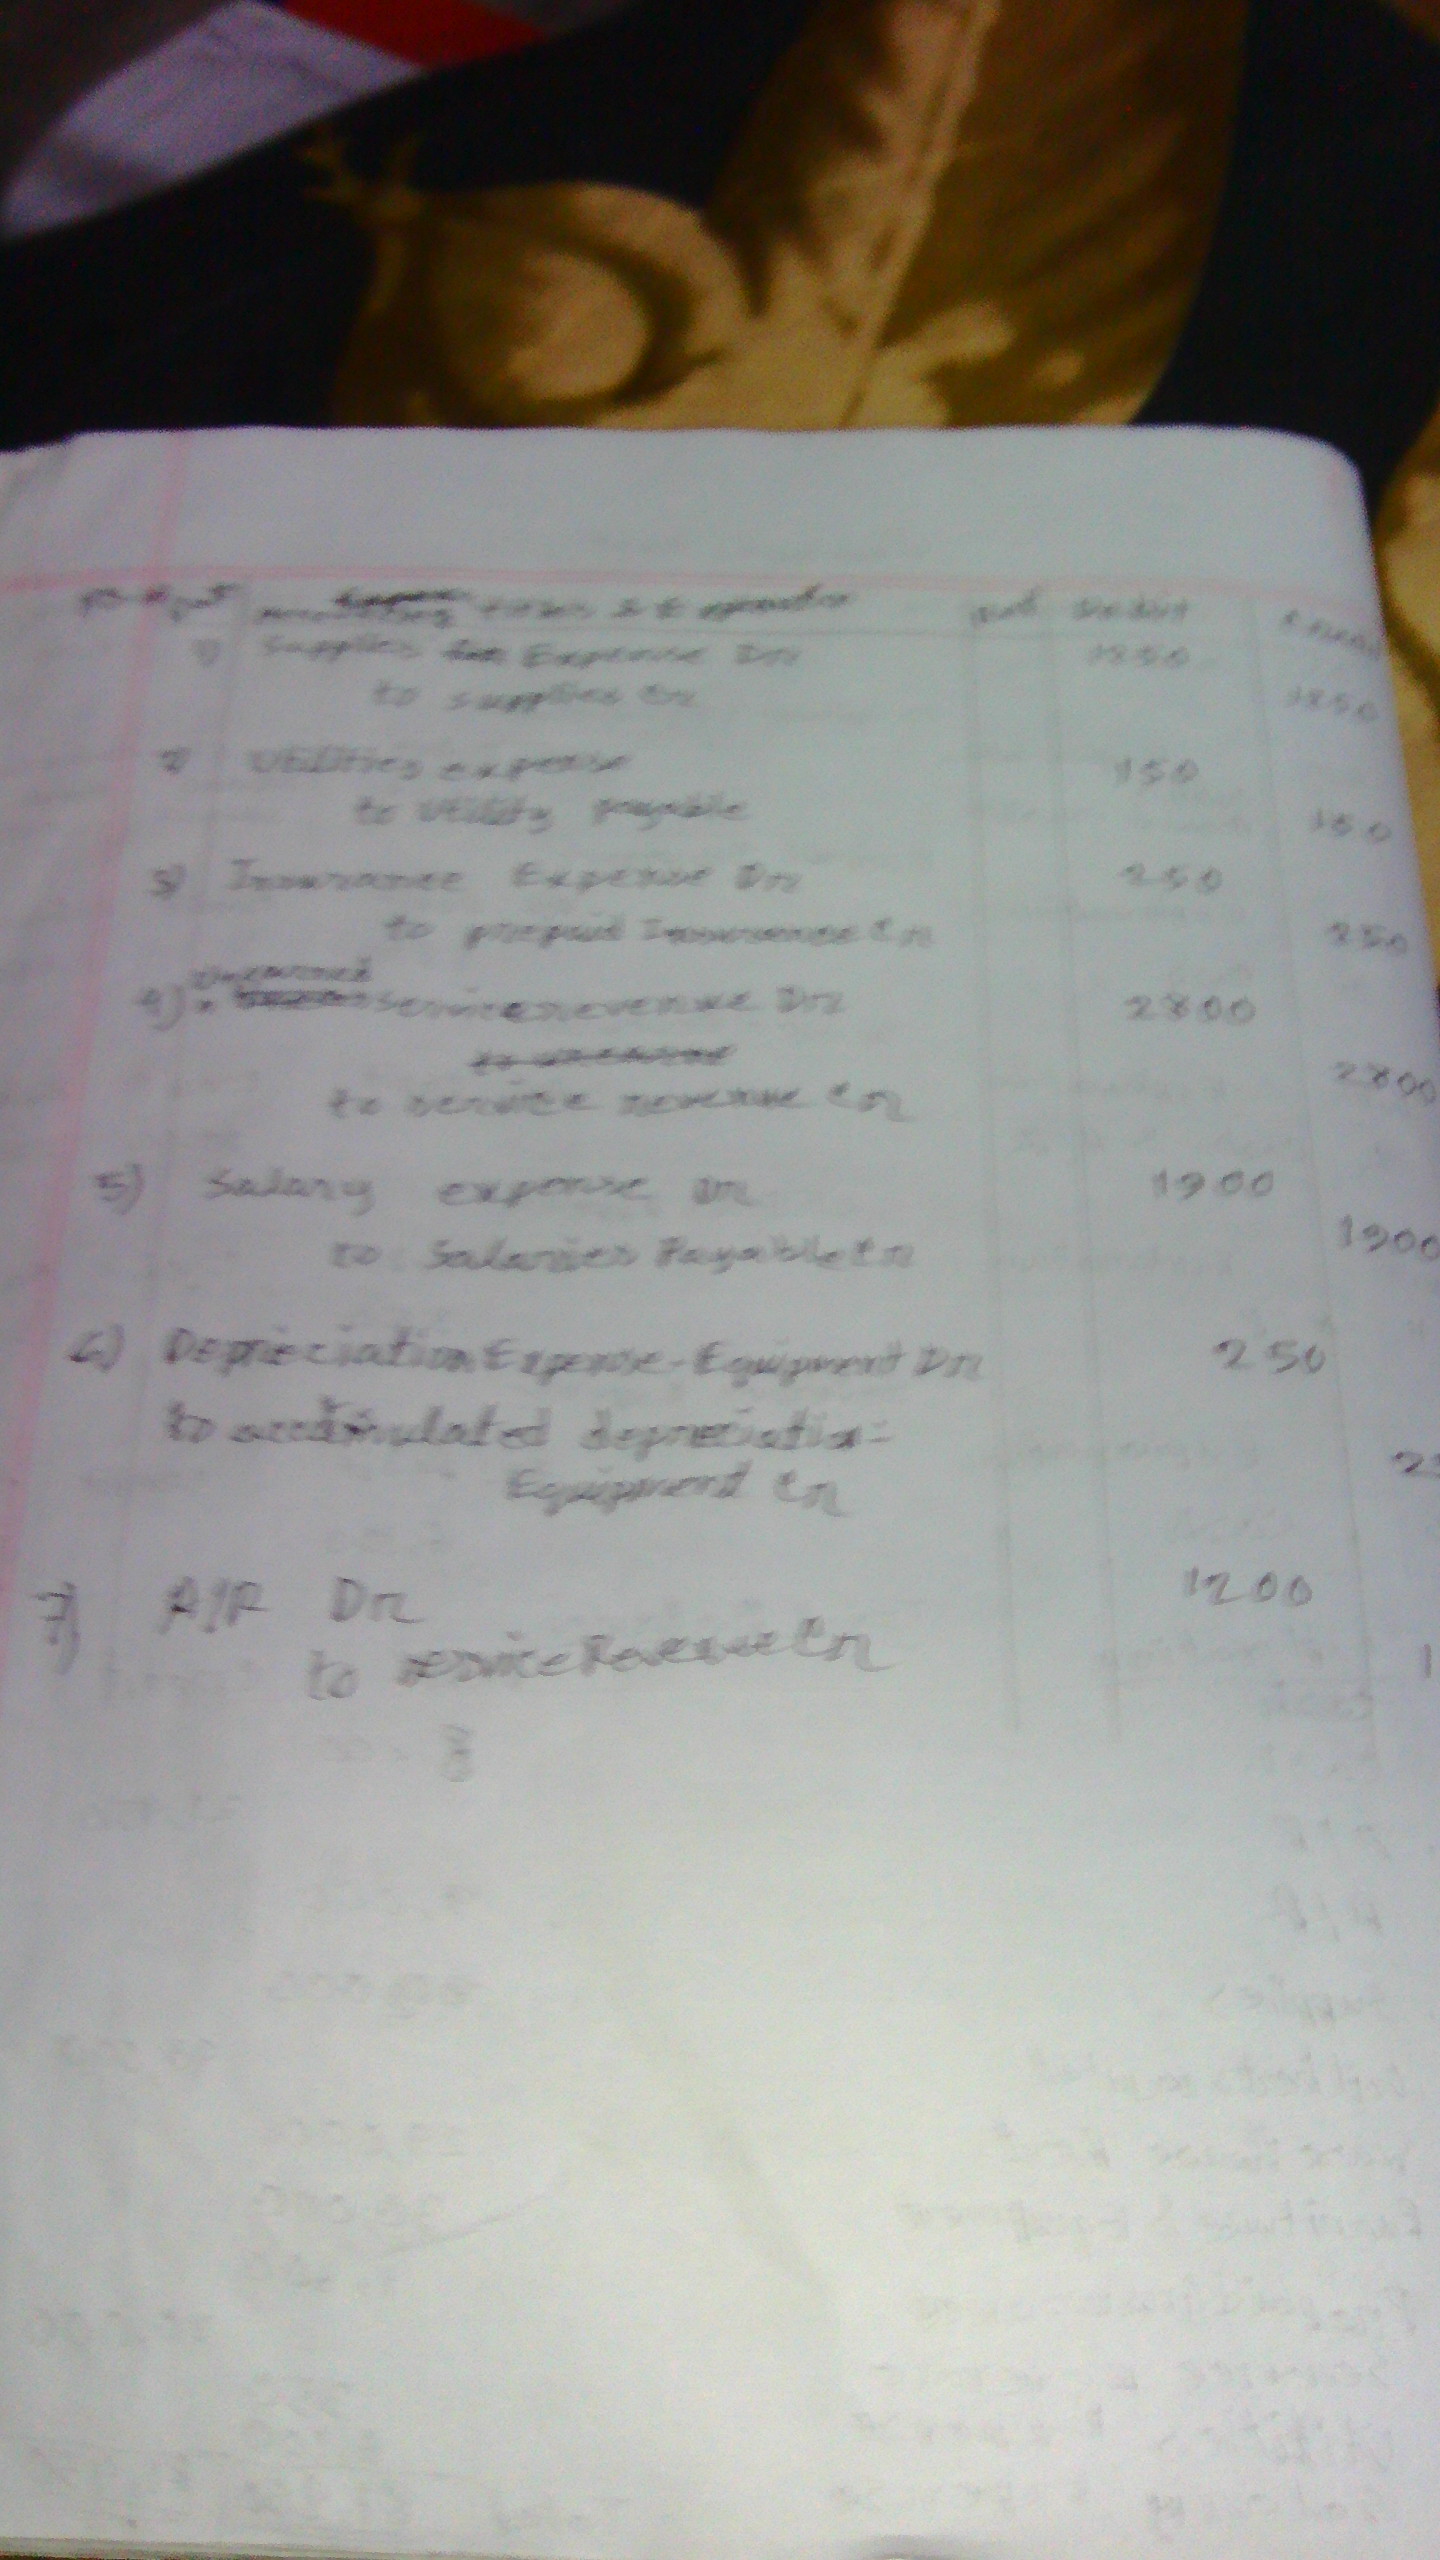 Ref Debit Credit
1) Supplies Expense Dr 1850
to supplies Cr 1850
2) Utilities expense 150
to Utility payable 150
3) Insurance Expense Dr 250
to prepaid Insurance Cr 250
4) Unearned service revenue Dr 2800
to service revenue Cr 2800
5) Salary expense Dr 1900
to Salaries Payable Cr 1900
6) Depreciation Expense-Equipment Dr 250
to accumulated depreciation-
Equipment Cr
7) A/R Dr 1200
to service Revenue Cr